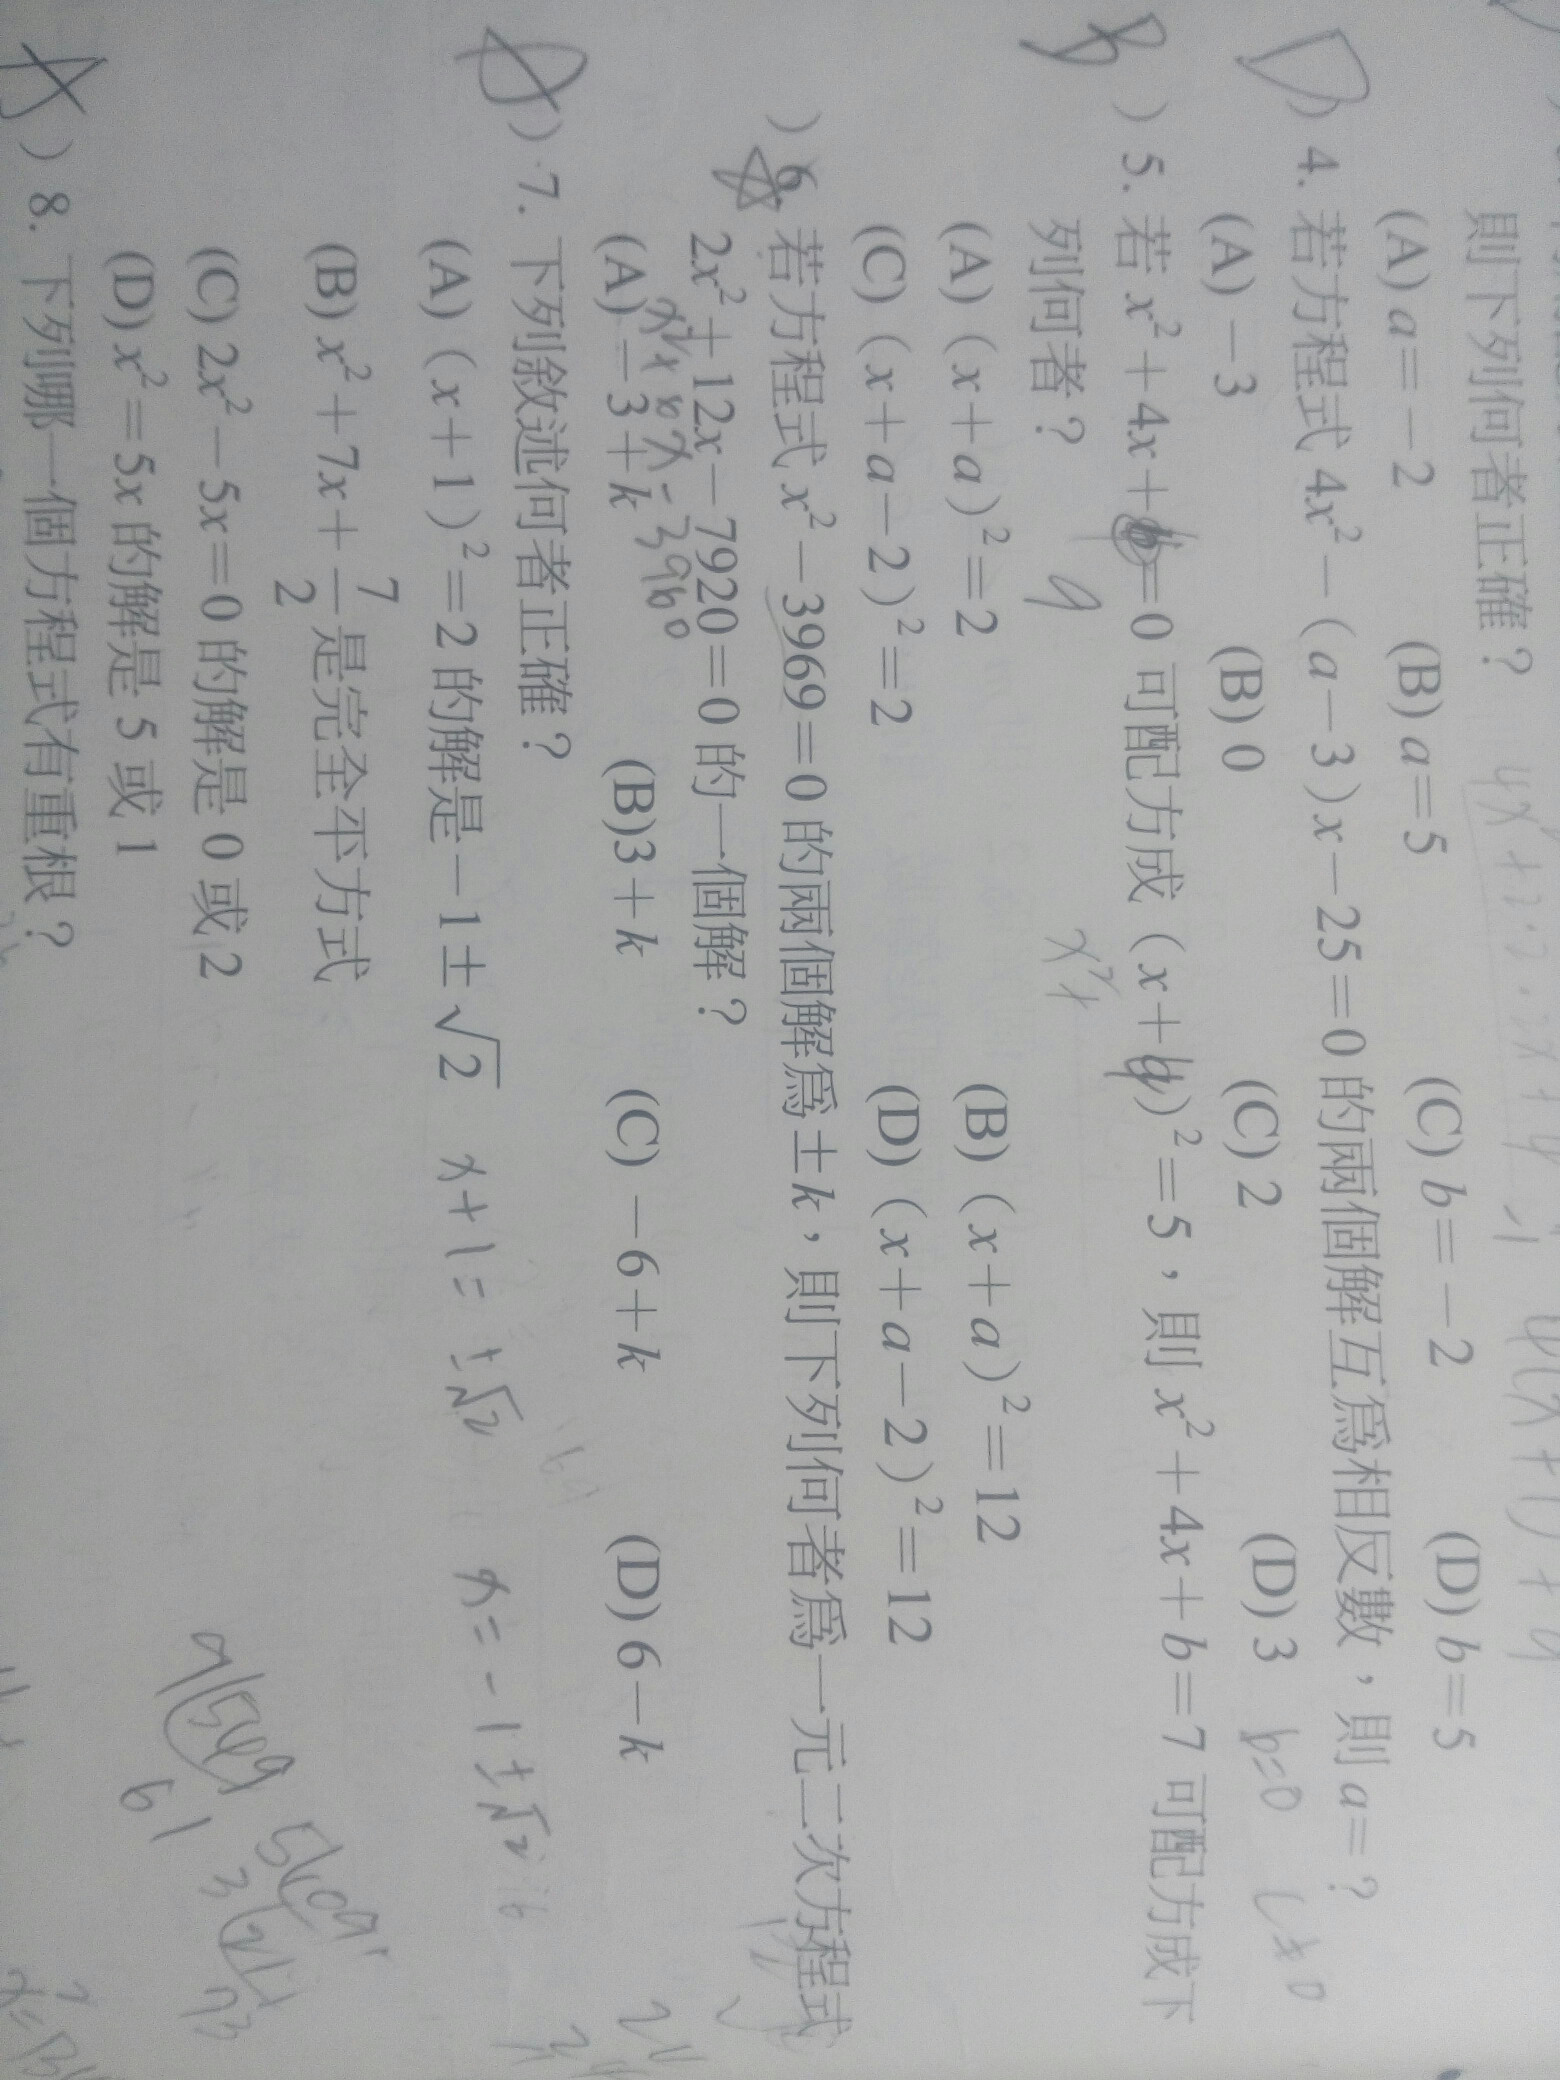 則下列何者正確？
(A) a=-2 (B) a=5 (C) b=-2 (D) b=5
4. 若方程式 4x²-(a-3)x-25=0 的兩個解互為相反數，則 a=？
(A) -3 (B) 0 (C) 2 (D) 3 b=0
B ) 5. 若 x²+4x+b=0 可配方成 (x+a)²=5，則 x²+4x+b=7 可配方成下
列何者？
(A) (x+a)²=2 (B) (x+a)²=12
(C) (x+a-2)²=2 (D) (x+a-2)²=12
) 6. 若方程式 x²-3969=0 的兩個解為±k，則下列何者為一元二次方程式
2x²+12x-7920=0 的一個解？
(A) -3+k (B) 3+k (C) -6+k (D) 6-k
) 7. 下列敘述何者正確？
(A) (x+1)²=2 的解是 -1±√2 x+1=±√2 x=-1±√2
(B) x²+7x+7/2 是完全平方式
(C) 2x²-5x=0 的解是 0 或 2
(D) x²=5x 的解是 5 或 1
) 8. 下列哪一個方程式有重根？